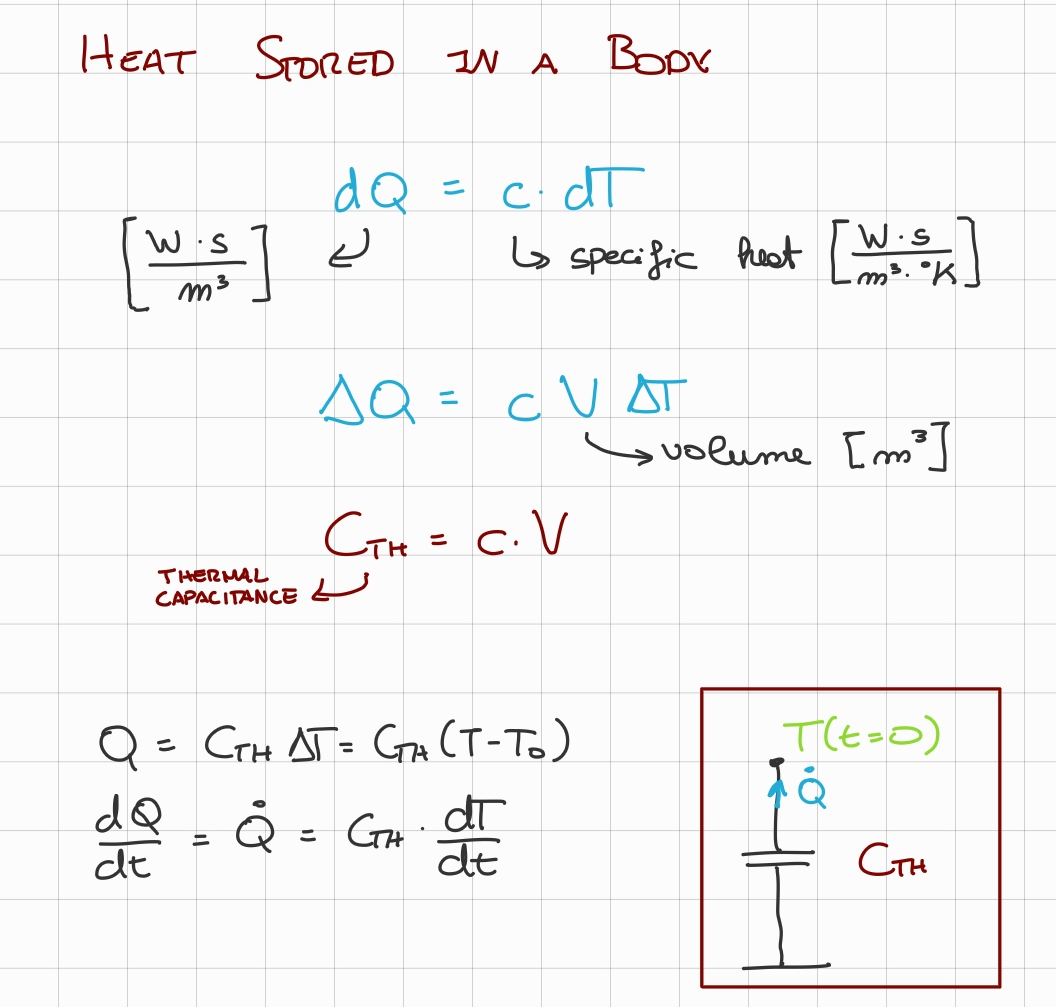 HEAT STORED IN A BODY
dQ = c · dT
[W·s / m³] ↙ ↳ specific heat [W·s / m³·°K]
ΔQ = c V ΔT
→ volume [m³]
C_TH = c · V
THERMAL
CAPACITANCE ←
Q = C_TH ΔT = C_TH (T-T₀)
dQ/dt = Q̇ = C_TH · dT/dt
T(t=0)
Q̇
C_TH